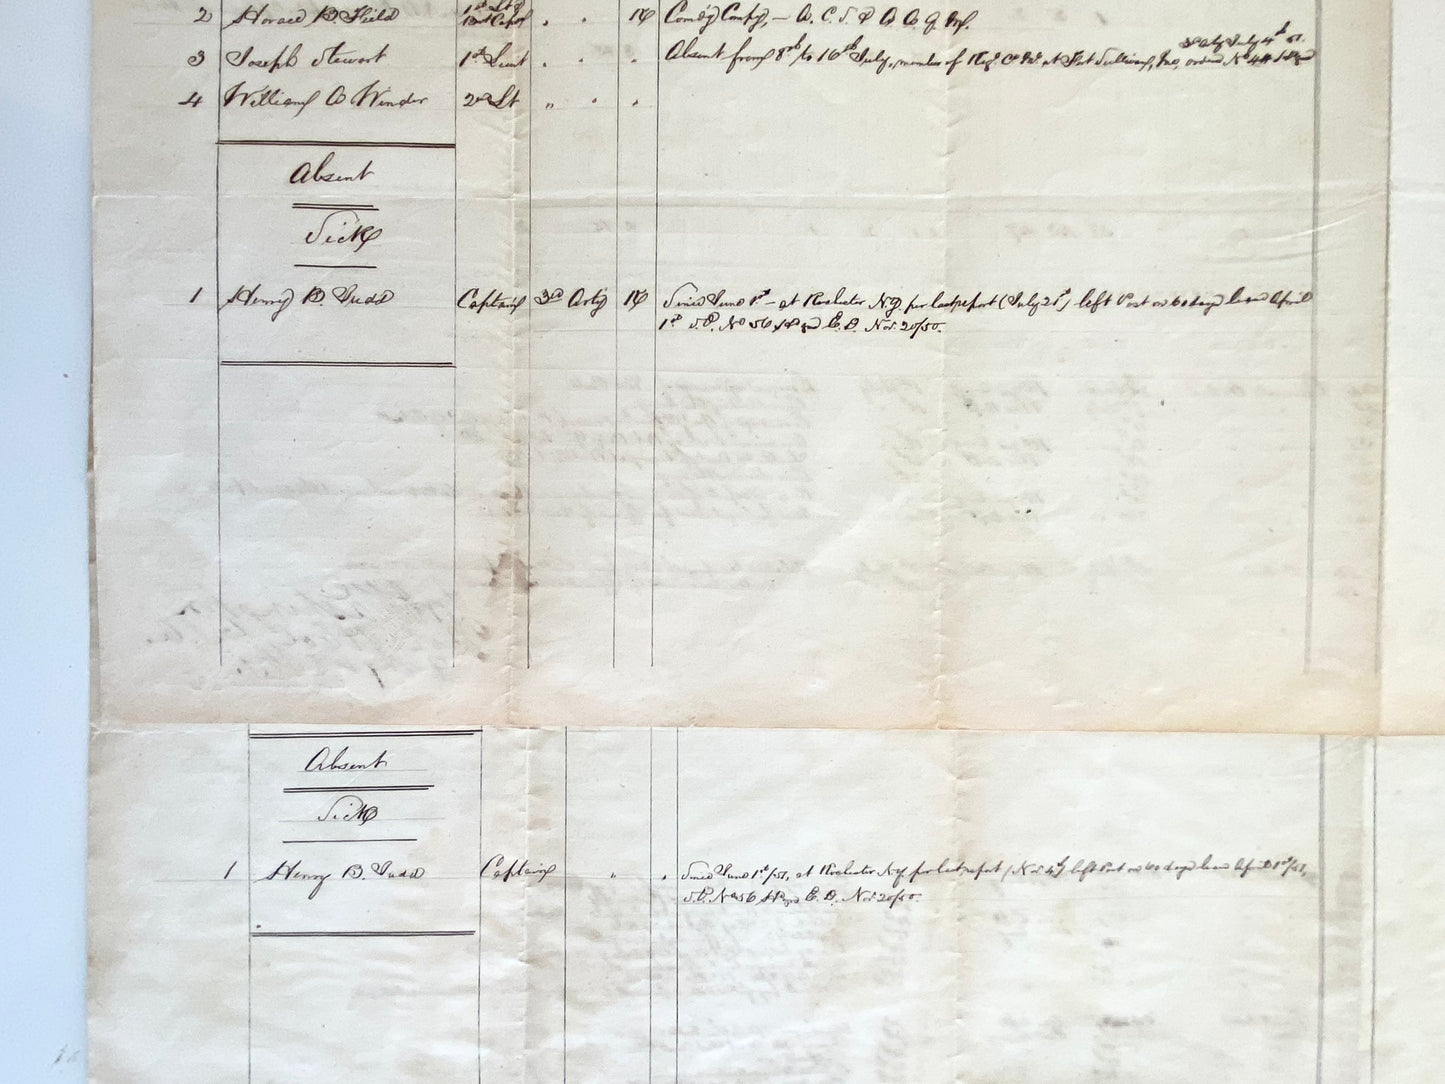 2 Horace B. Field 1st Lt & Bvt Capt " " K Comd'g Comp'y, — A. C. S. & A. A. Q. M.
3 Joseph Stewart 1st Lieut " " " Absent from 8th to 16th July, member of at Fort Sullivan, Me, order No
July 4th 51.
4 William A Winder 2nd Lt " " "
Absent
Sick
1 Henry B Judd Captain 3rd Arty K Since June 1st — at Rochester N.Y. per last report (July 21st) left Post on 60 days leave April
1st S.O. No 56 Hd qrs E. D. Nov 20/50.
Absent
Sick
1 Henry B. Judd Captain " " Since June 1st/51, at Rochester N.Y. per last report (Nov 4th) left Post on 60 days leave April 1st/51,
S.O. No 56 Hd qrs E. D. Nov 20/50.